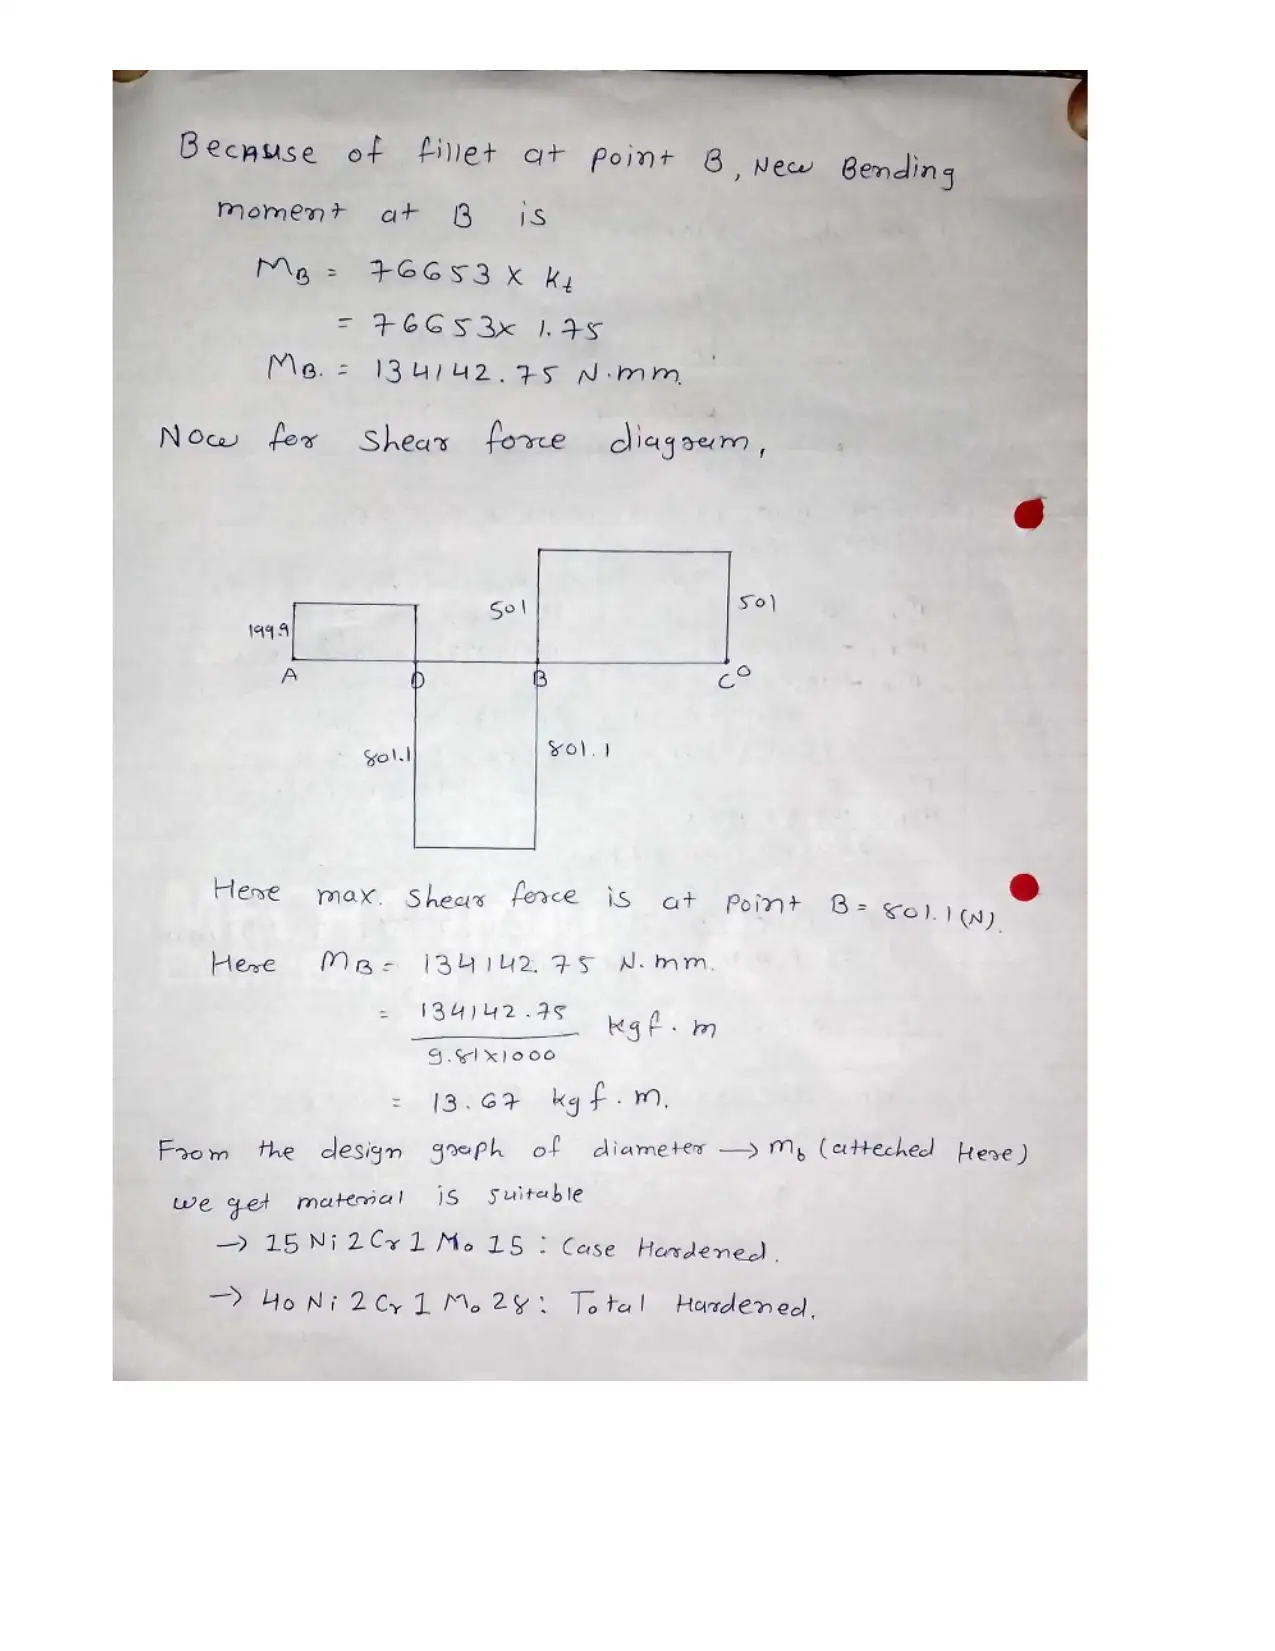 Because of fillet at point B, New Bending
moment at B is
MB = 76653 x Kt
= 76653x 1.75
MB. = 134142.75 N.mm.
Now for shear force diagram,
501
501
199.9
A D B C 0
801.1
801.1
Here max. shear force is at point B = 801.1 (N).
Here MB = 134142.75 N.mm.
= 134142.75 / 9.81x1000 kgf.m
= 13.67 kgf.m.
From the design graph of diameter → Mb (atteched Here)
we get material is suitable
→ 15 Ni 2 Cr 1 Mo 15 : Case Hardened.
→ 40 Ni 2 Cr 1 Mo 28 : Total Hardened.